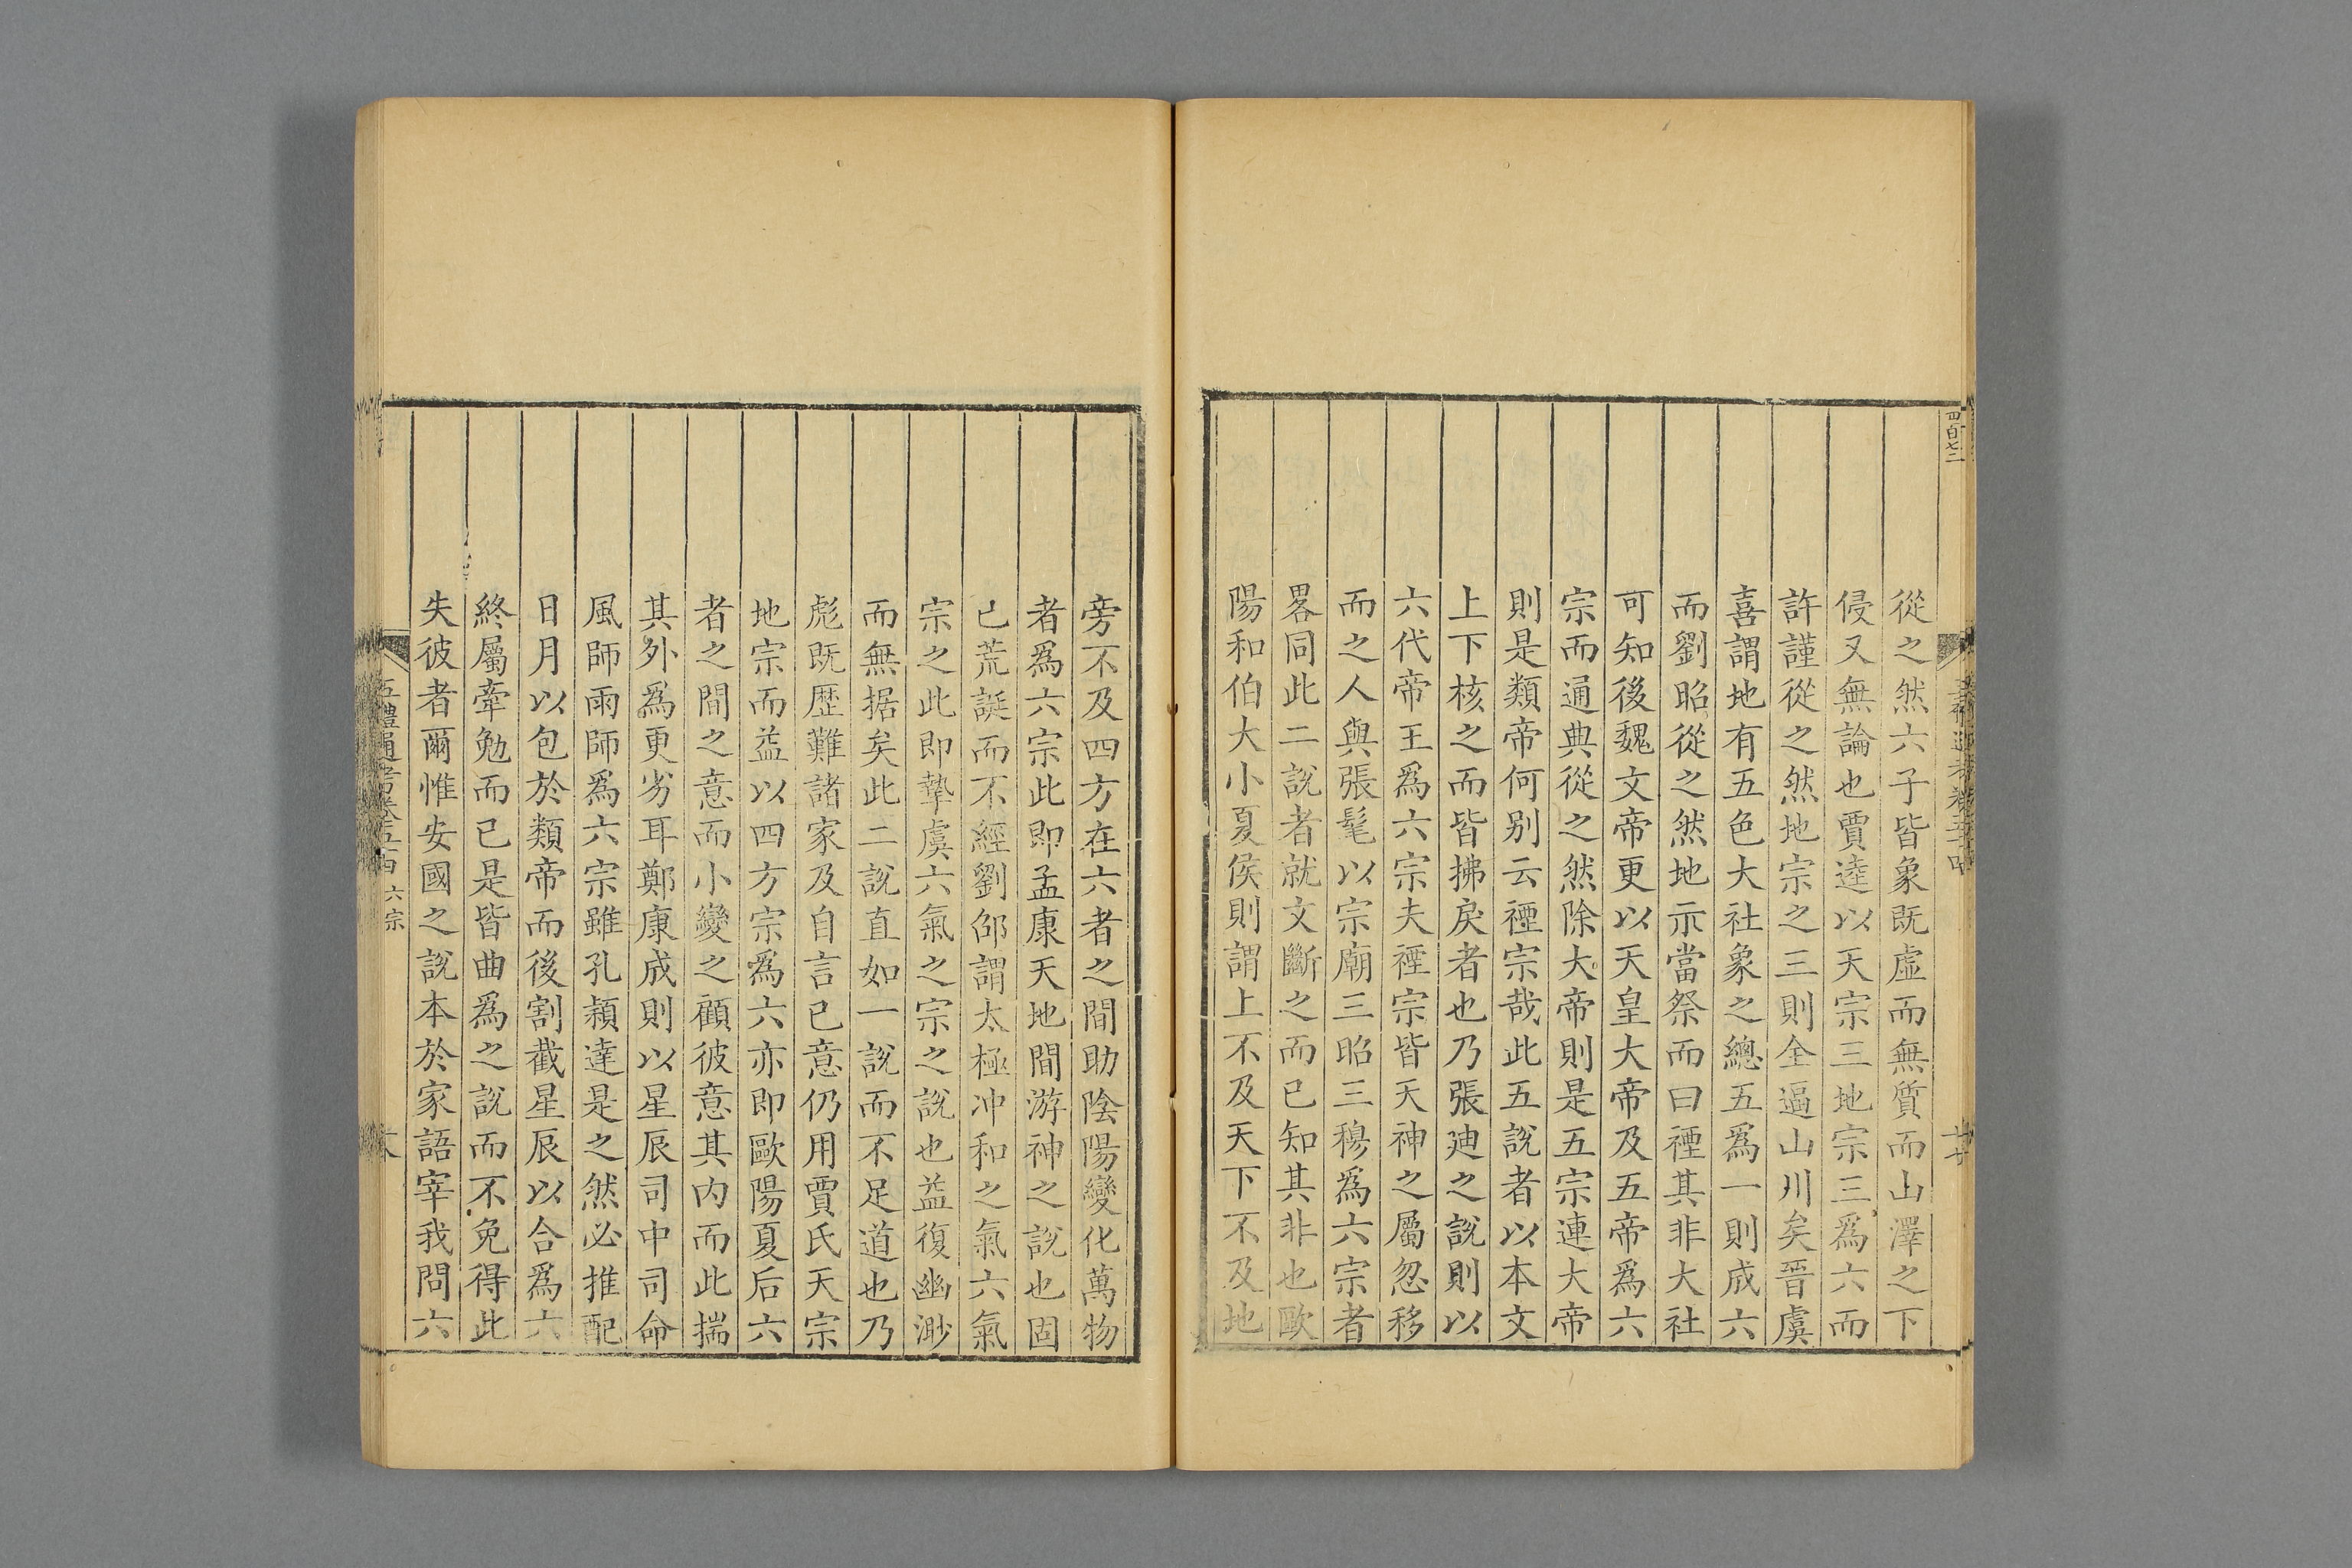 四百七二
從之然六子皆象既虛而無質而山澤之下
侵又無論也賈逵以天宗三地宗三爲六而
許謹從之然地宗之三則全逼山川矣晉虞
喜謂地有五色大社象之總五爲一則成六
而劉昭從之然地示當祭而曰禋其非大社
可知後魏文帝更以天皇大帝及五帝爲六
宗而通典從之然除大帝則是五宗連大帝
則是類帝何别云禋宗哉此五說者以本文
上下核之而皆拂戾者也乃張廸之說則以
六代帝王爲六宗夫禋宗皆天神之屬忽移
而之人與張髦以宗廟三昭三穆爲六宗者
畧同此二說者就文斷之而已知其非也歐
陽和伯大小夏侯則謂上不及天下不及地
旁不及四方在六者之間助陰陽變化萬物
者爲六宗此即孟康天地間游神之說也固
已荒誕而不經劉邵謂太極冲和之氣六氣
宗之此即摯虞六氣之宗之說也益復幽渺
而無据矣此二說直如一說而不足道也乃
彪既歷難諸家及自言已意仍用賈氏天宗
地宗而益以四方宗爲六亦即歐陽夏后六
者之間之意而小變之顧彼意其内而此揣
其外爲更劣耳鄭康成則以星辰司中司命
風師雨師爲六宗雖孔穎達是之然必推配
日月以包於類帝而後割截星辰以合爲六
終屬牽勉而已是皆曲爲之說而不免得此
失彼者爾惟安國之說本於家語宰我問六
五禮通考卷五十四 六宗